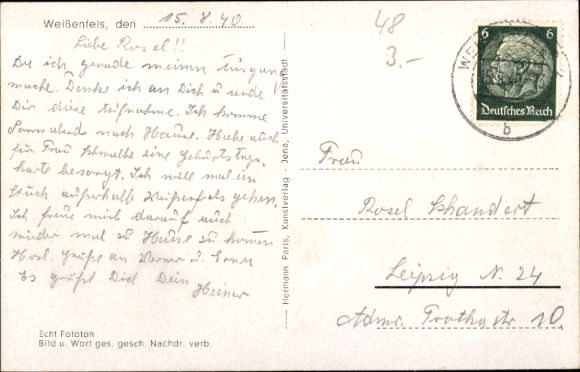 Weißenfels, den 15. 8. 40
Liebe Rosel!!
Da ich gerade meinen Ausgang
mache. Denke ich an Dich u. sende
Dir diese Aufnahme. Ich komme
Sonnabend nach Hause. Habe auch
für Frau eine Geburtstags
karte besorgt. Ich will mal ein
Stück außerhalb Weißenfels gehen.
Ich freue mich darauf auch
wieder mal zu Hause zu kommen
Herzl. Grüße an Werner u.
Es grüßt Dich Dein
Heiner
Echt Fototon
Bild u. Wort ges. gesch. Nachdr. verb.
Hermann Paris, Kunstverlag - Jena, Universitätsstadt
48
3.-
6 6
Deutsches Reich
b
Frau
Rosel
Leipzig N. 24
Str 10.